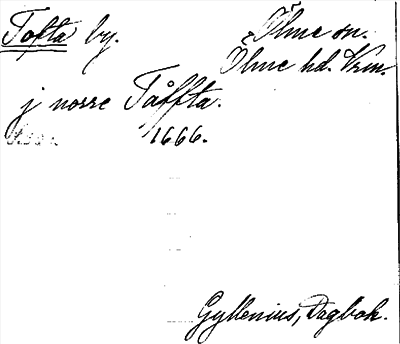 Tofta by. Ölme sn.
Ölme hd. Vrm.
j norre Tåffta.
1666.
Gyllenius, Dagbok.